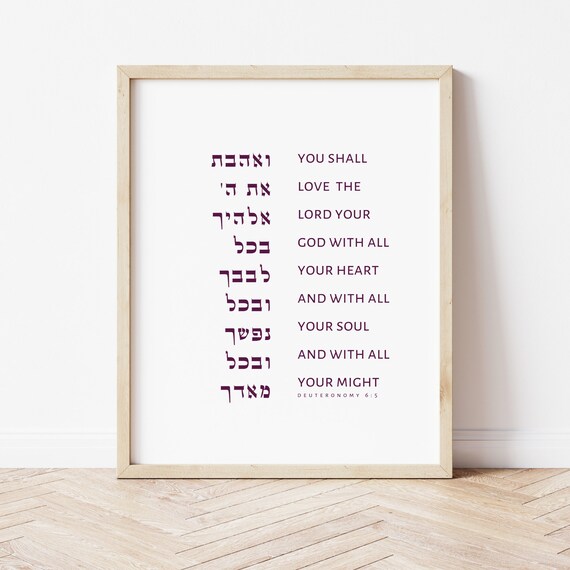 ואהבת
את ה'
אלהיך
בכל
לבבך
ובכל
נפשך
ובכל
מאדך
YOU SHALL
LOVE THE
LORD YOUR
GOD WITH ALL
YOUR HEART
AND WITH ALL
YOUR SOUL
AND WITH ALL
YOUR MIGHT
DEUTERONOMY 6:5